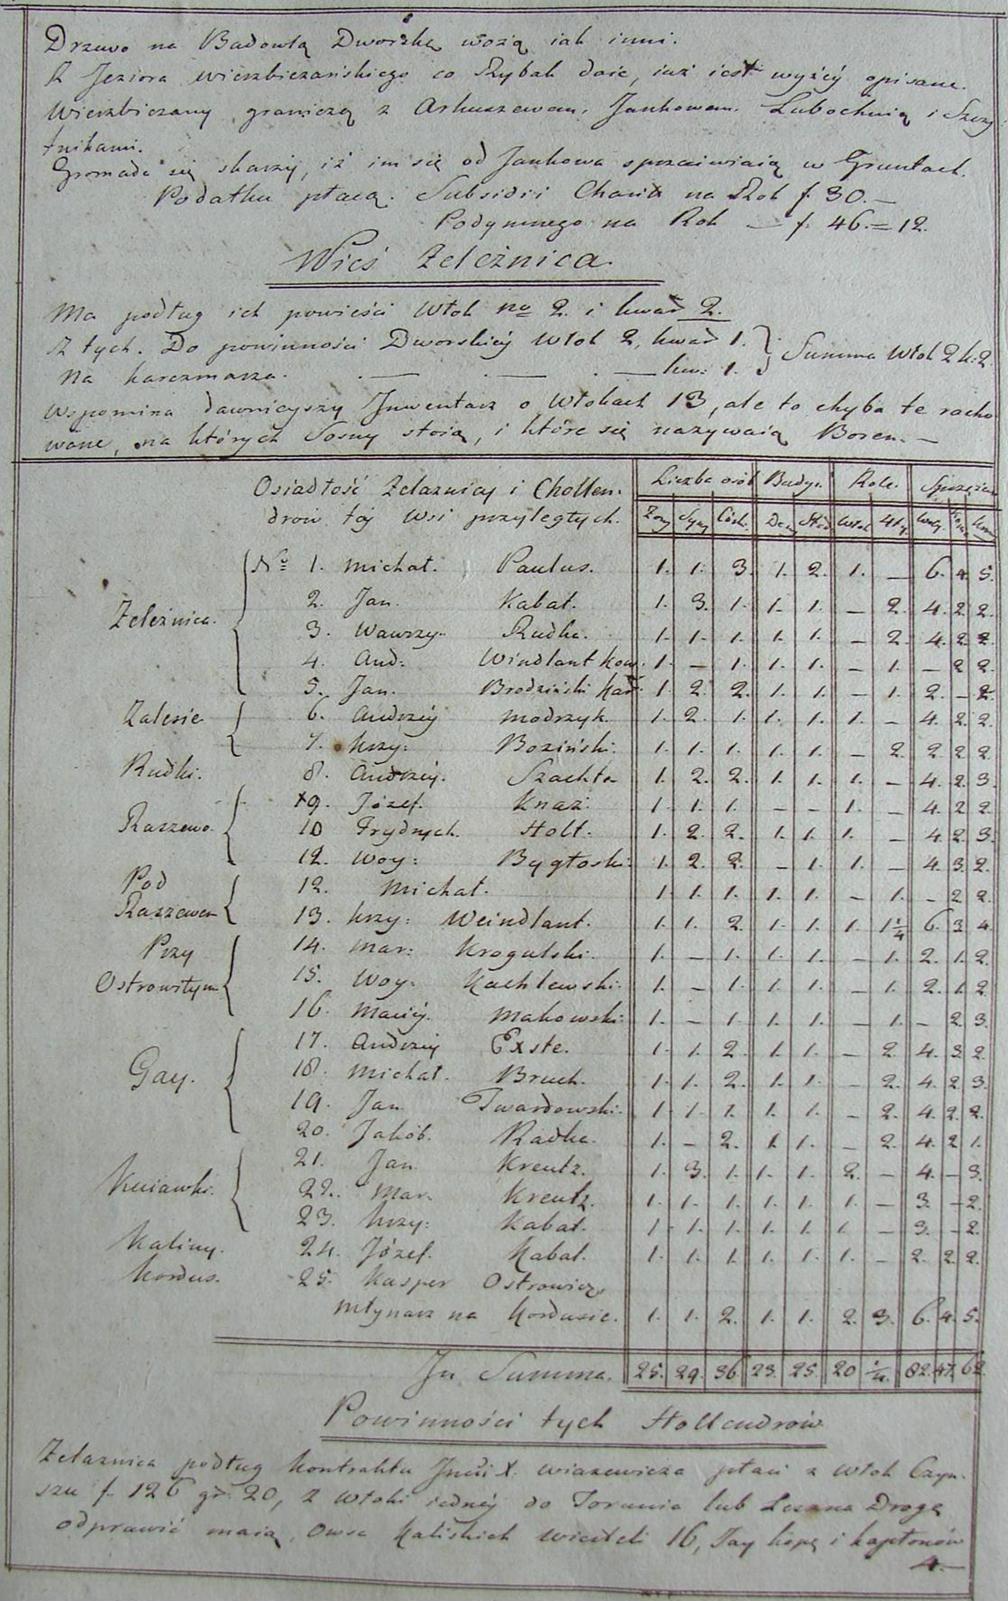 Drzewo na Budowlą Dworską wożą iak inni.
Z Jeziora wierzbiczańskiego co Rybak daie, iuż iest wyżéy opisane.
Wierzbiczany graniczą z Arkuszewem, Jankowem, Lubochnią i Szczy
tnikami.
Gromada się skarży, iż im się od Jankowa sprzeiwiaią w Gruntach.
Podatku płacą. Subsidii Charit. na Rok f. 30.—
Podymnego na Rok — f. 46.= 12.
Wieś Zeleźnica.
Ma podług ich powieści Włok no 2. i kwar 2.
Z tych. Do powinności Dworskiéy Włok 2, kwar 1. } Summa Włok 2 k: 2.
Na karczmarza. — — — kw: 1.
Wspomina dawnieyszy Inwentarz o Włokach 13, ale to chyba te racho
wane, na których Sosny stoią, i które się nazywaią Borem. —
Osiadłość Zelaznicy i Hollen- Liczba osób Budyn: Role. Sprzężai
drów téy wsi przyległych. Żony Syny Córk. Dom Stod Włok Woły Konie
Zeleźnica. No 1. Michał. Paulus. 1. 1. 3. 1. 2. 1. — 6. 4. 5.
2. Jan. Kabat. 1. 3. 1. 1. 1. — 2. 4. 2. 2.
3. Wawrzy: Rudka. 1. 1. 1. 1. 1. — 2. 4. 2. 2.
4. And: Windlant Kow. 1. — 1. 1. 1. — 1. — 2. 2.
5. Jan. Brodziński Kar. 1. 2. 2. 1. 1. — 1. 2. — 2.
Zalesie 6. Andrzéy Modrzyk. 1. 2. 1. 1. 1. 1. — 4. 2. 2.
7. Krzy: Boziński. 1. 1. 1. 1. 1. — 2. 2. 2. 2.
Rudki. 8. Andrzéy. Szachta 1. 2. 2. 1. 1. 1. — 4. 2. 3.
Raszewo. x9. Józef. Knaź 1. 1. 1. — — 1. — 4. 2. 2.
10 Frydrych. Holt. 1. 2. 2. 1. 1. 1. — 4. 2. 3.
12. Woy: Bygłoski. 1. 2. 2. — 1. 1. — 4. 3. 2.
Pod 12. Michał. 1. 1. 1. 1. 1. — 1. — 2. 2.
Raszewem 13. Krzy: Weindlant. 1. 1. 2. 1. 1. 1. 1¼ 6. 3. 4.
Przy 14. Mar: Krogulski. 1. — 1. 1. 1. — 1. 2. 1. 2.
Ostrowitym 15. Woy. Kachlewski. 1. — 1. 1. 1. — 1. 2. 1. 2.
16. Maciéy. Makowski. 1. — 1. 1. 1. — 1. — 2. 3.
Gay. 17. Andrzéy Exste. 1. 1. 2. 1. 1. — 2. 4. 3. 2.
18. Michał. Bruch. 1. 1. 2. 1. 1. — 2. 4. 2. 3.
19. Jan Twardowski. 1. 1. 1. 1. 1. — 2. 4. 2. 2.
20. Jakób. Radka. 1. — 2. 1. 1. — 2. 4. 2. 1.
Kuiawki. 21. Jan Kreutz. 1. 3. 1. 1. 1. 2. — 4. — 3.
22. Mar. Kreutz. 1. 1. 1. 1. 1. 1. — 3. — 2.
23. Krzy: Kabat. 1. 1. 1. 1. 1. 1. — 3. — 2.
Kaliny. 24. Józef. Kabat. 1. 1. 1. 1. 1. 1. — 2. 2. 2.
Kordus. 25. Kasper Ostrowicz
Młynarz na Kordusie. 1. 1. 2. 1. 1. 2. 3. 6. 4. 5.
In Summa. 25. 29. 36. 23. 25. 20 ¼. 82. 47. 62.
Powinności tych Hollendrów
Zelaznica podług kontraktu X. wiazewicza płaci z włok Czyn-
szu f. 126 gr. 20, z włoki iednéy do Torunia lub Leszna Drogę
odprawić maią, Owsa Kaliskich wierteli 16, Jay kopę i kapłonów
4.—